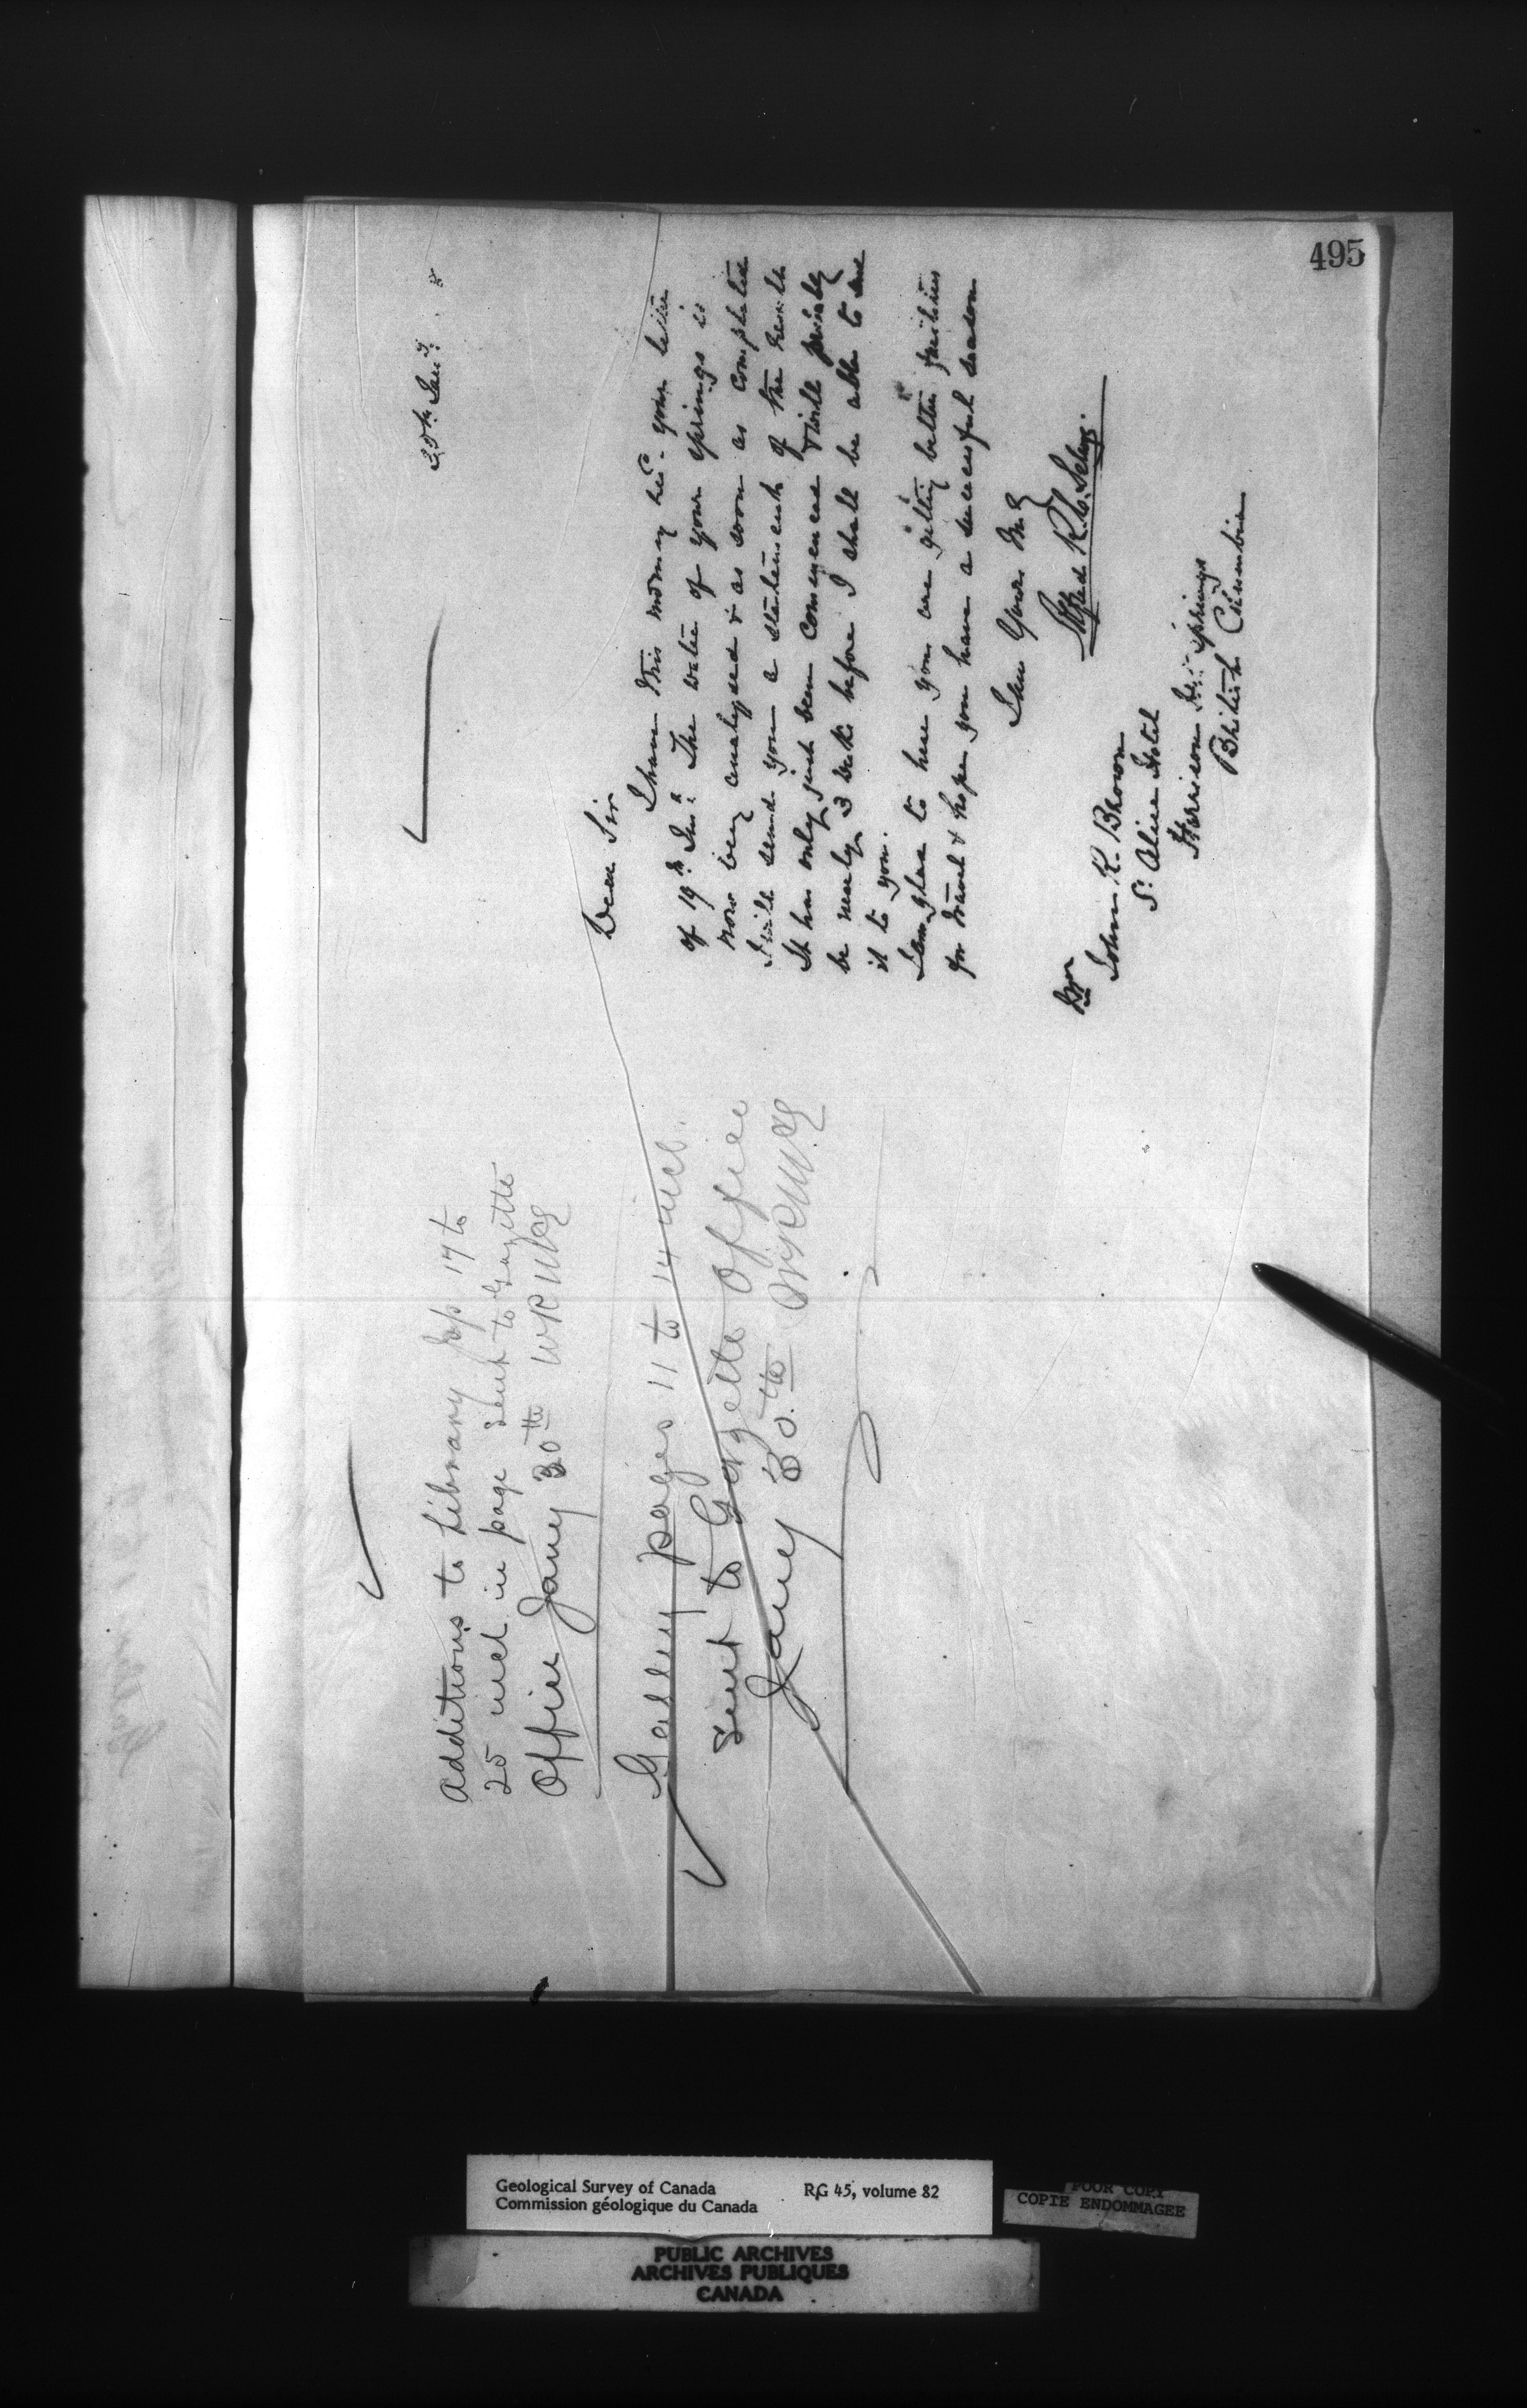 495
Additions to Library pp 17 to
25 incl in page sent to Gazette
Office Jany 30th
Galley pages 11 to 14 incl.
sent to Gazette Office
Jany 30th
Dear Sir
I have this morning your letter
of 19th The water of your springs is
now being analysed & as soon as completed
I will send you a statement of the
It has only just been commenced & will
be nearly 3 before I shall be able to
it to you.
I am glad to hear you are getting better facilities
for travel & hope you have a successful season
I am Yours
Alfred R. C. Selwyn.
John R. Brown
St. Alice Hotel
Harrison Springs
British Columbia
Geological Survey of Canada RG 45, volume 82
Commission géologique du Canada
POOR COPY
COPIE ENDOMMAGEE
PUBLIC ARCHIVES
ARCHIVES PUBLIQUES
CANADA